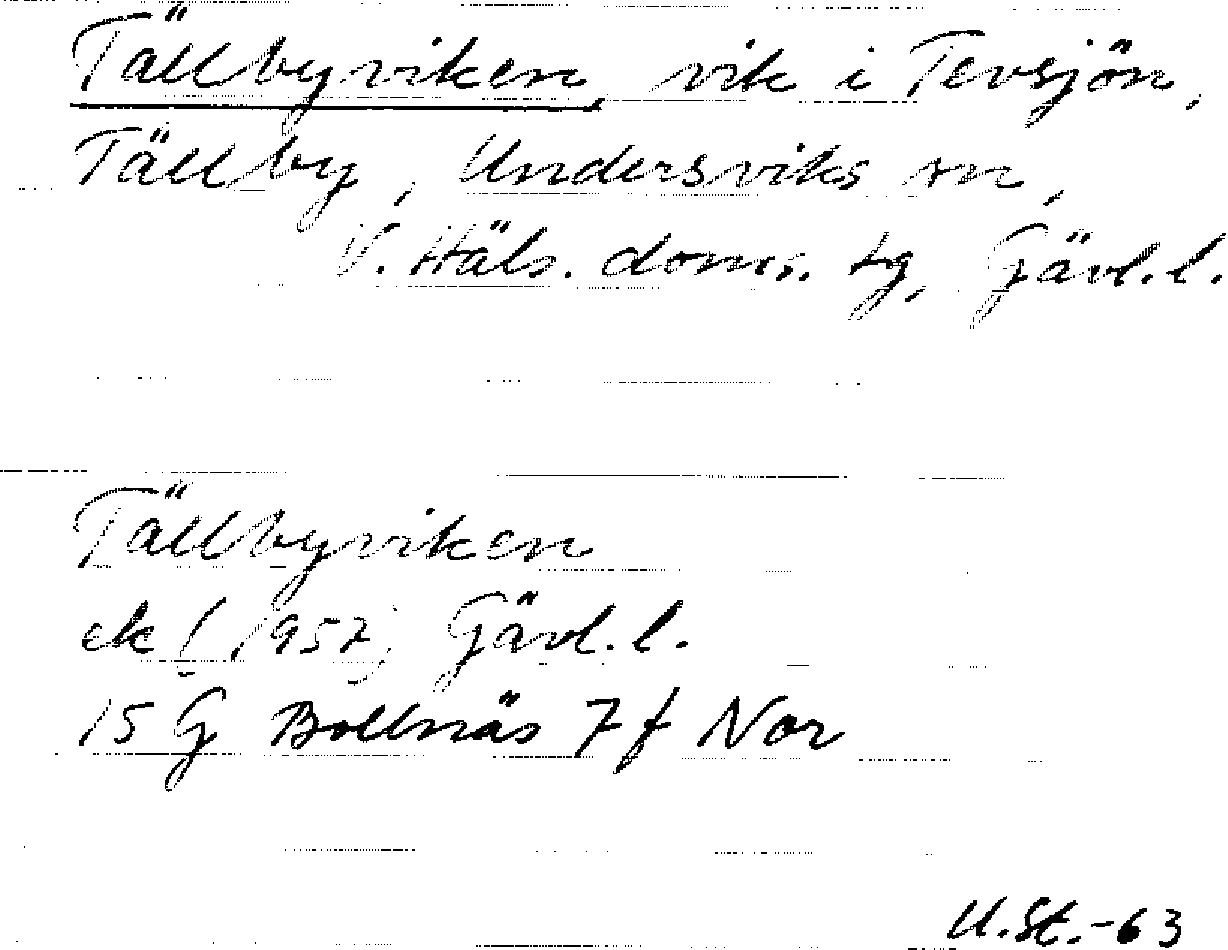 Tällbyviken, vik i Tevsjön,
Tällby, Undersviks sn,
V. Häls. doms. tg, Gävl.l.
Tällbyviken
ek (1957) Gävl.l.
15 G Bollnäs 7 f Nor
U.St.-63